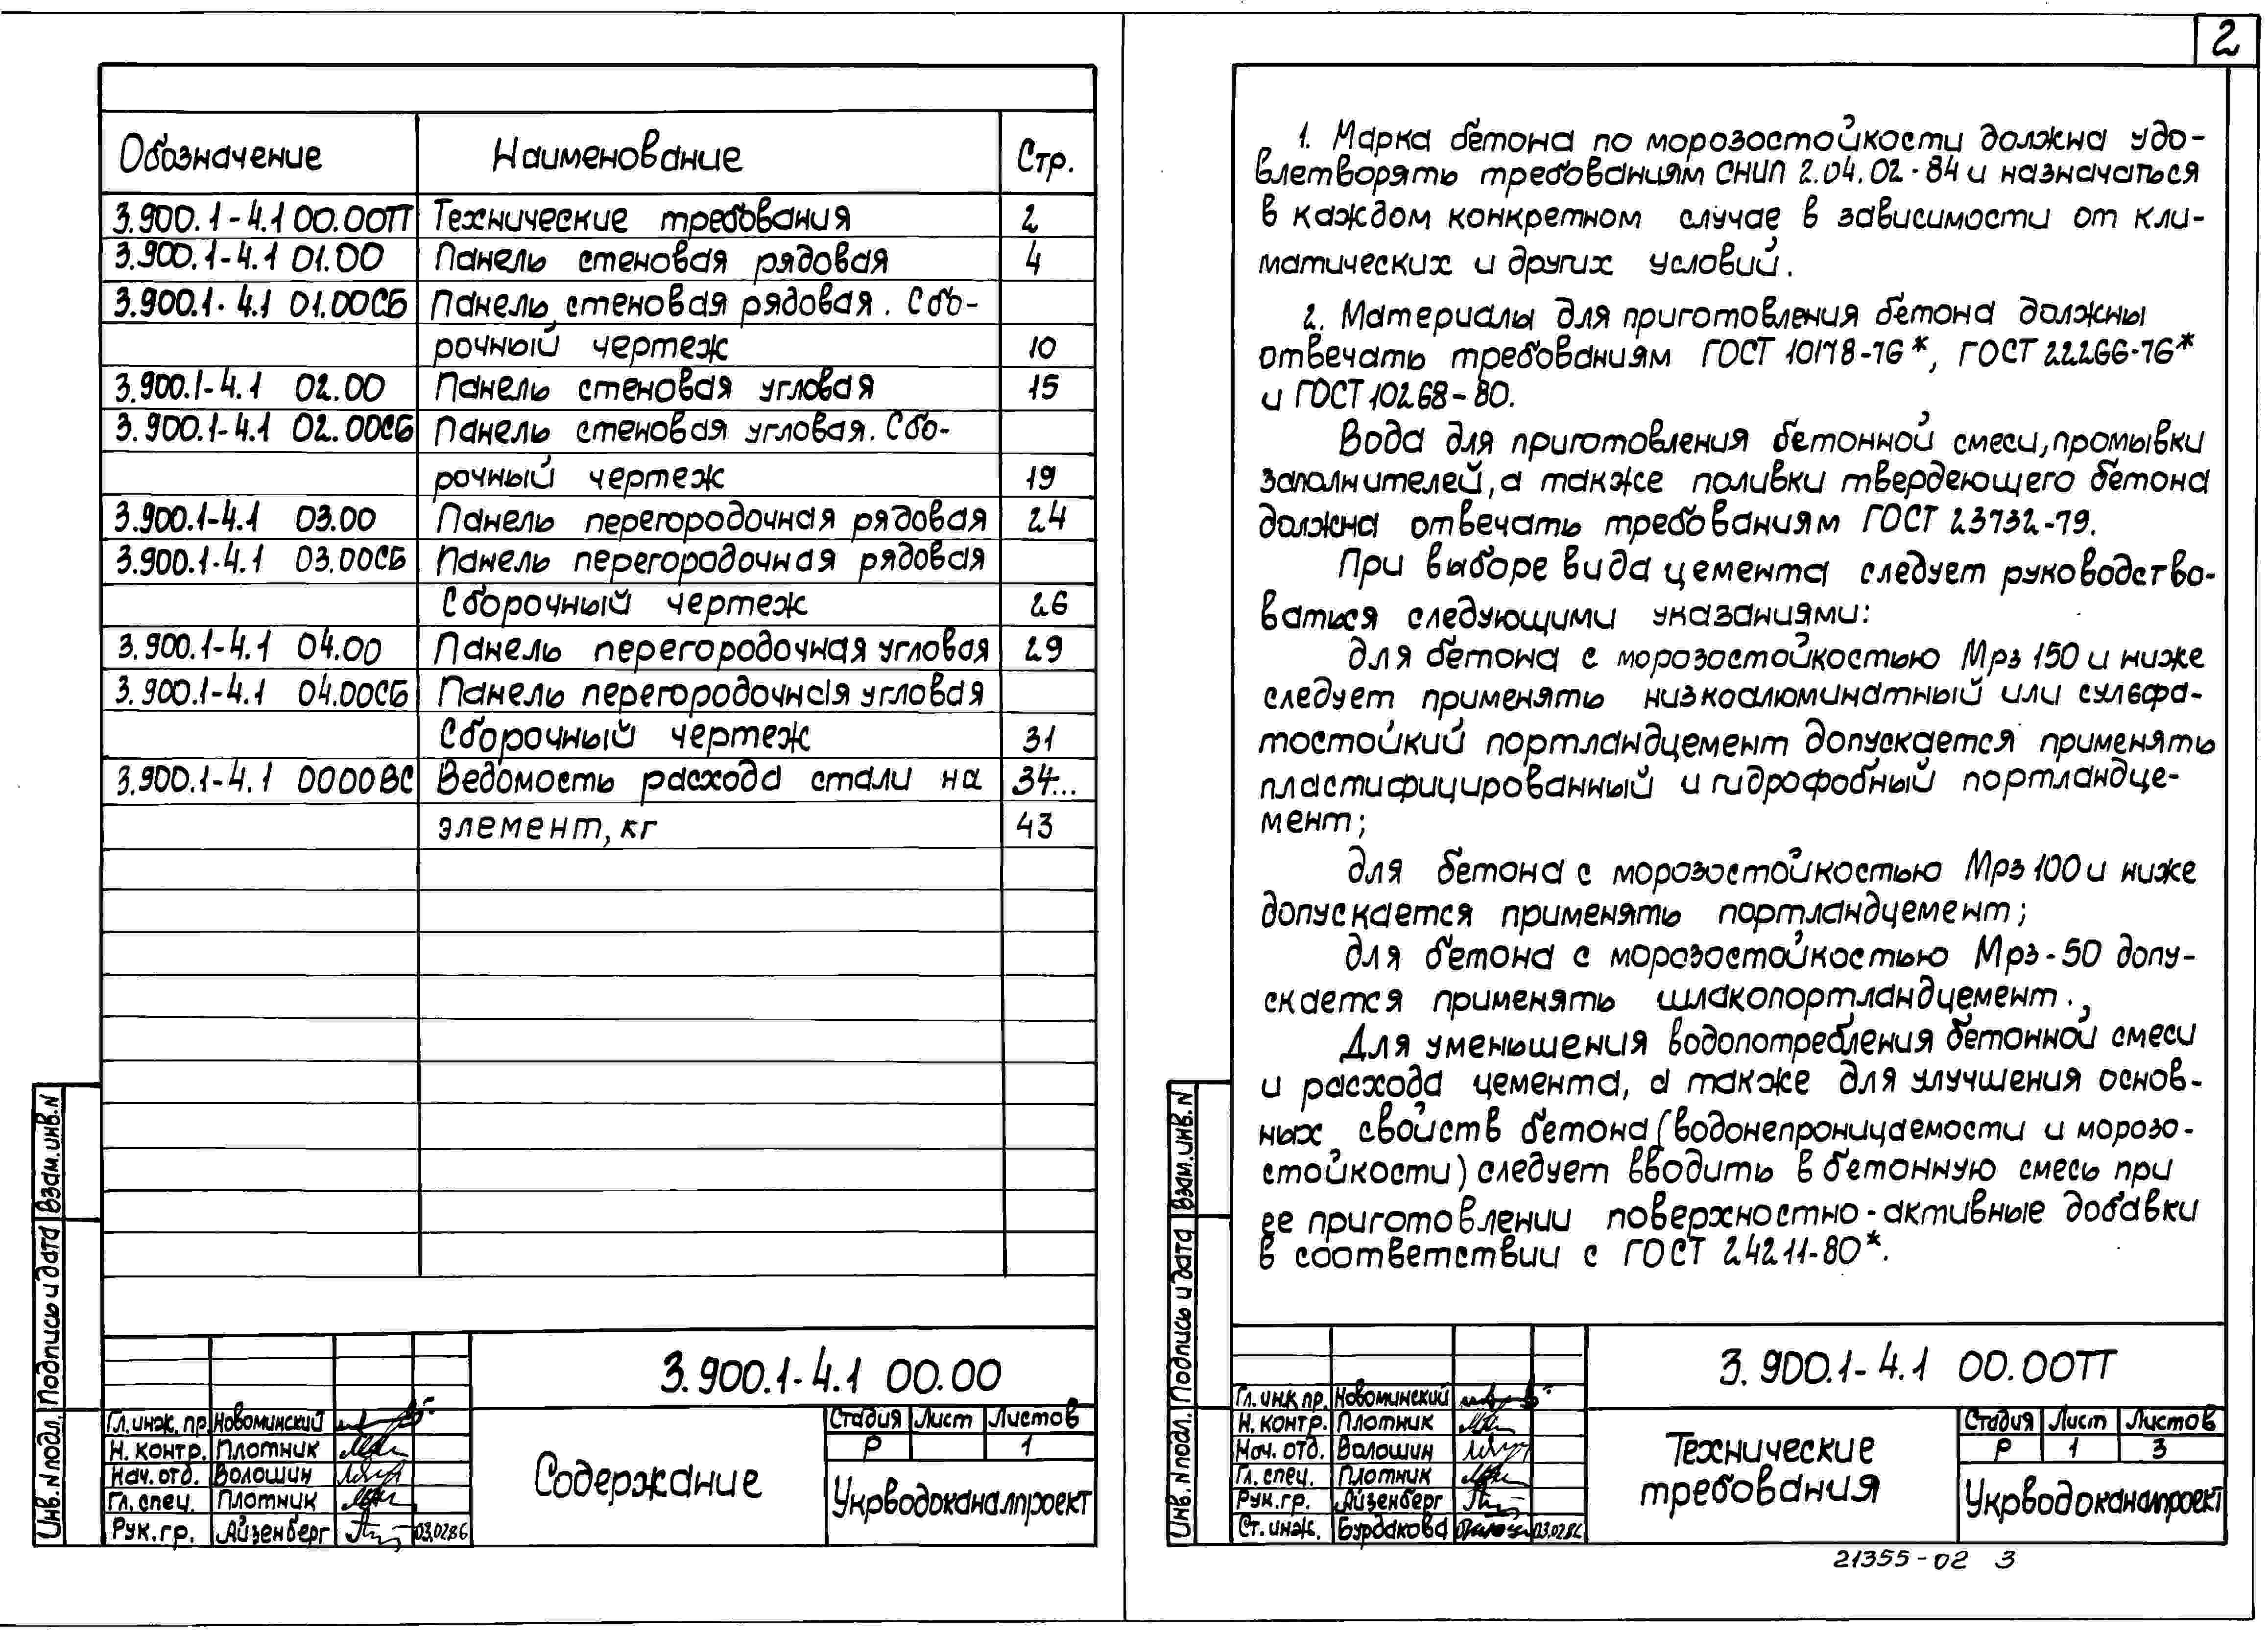 Обозначение Наименование Стр.
3.900.1-4.1 00.00ТТ Технические требования 2
3.900.1-4.1 01.00 Панель стеновая рядовая 4
3.900.1-4.1 01.00СБ Панель стеновая рядовая. Сбо-
рочный чертеж 10
3.900.1-4.1 02.00 Панель стеновая угловая 15
3.900.1-4.1 02.00СБ Панель стеновая угловая. Сбо-
рочный чертеж 19
3.900.1-4.1 03.00 Панель перегородочная рядовая 24
3.900.1-4.1 03.00СБ Панель перегородочная рядовая
Сборочный чертеж 26
3.900.1-4.1 04.00 Панель перегородочная угловая 29
3.900.1-4.1 04.00СБ Панель перегородочная угловая
Сборочный чертеж 31
3.900.1-4.1 0000ВС Ведомость расхода стали на 34...
элемент, кг 43
Взам.инв.N
Подпись и дата
Инв.Nподл.
3.900.1-4.1 00.00
Гл.инж.пр. Новоминский
Н.контр. Плотник
Нач.отд. Волошин
Гл.спец. Плотник
Рук.гр. Айзенберг 03.02.86
Содержание
Стадия Лист Листов
Р 1
Укрводоканалпроект
2
1. Марка бетона по морозостойкости должна удо-
влетворять требованиям СНИП 2.04.02-84 и назначаться
в каждом конкретном случае в зависимости от кли-
матических и других условий.
2. Материалы для приготовления бетона должны
отвечать требованиям ГОСТ 10178-76*, ГОСТ 22266-76*
и ГОСТ 10268-80.
Вода для приготовления бетонной смеси, промывки
заполнителей, а также поливки твердеющего бетона
должна отвечать требованиям ГОСТ 23732-79.
При выборе вида цемента следует руководство-
ваться следующими указаниями:
для бетона с морозостойкостью Мрз 150 и ниже
следует применять низкоалюминатный или сульфа-
тостойкий портландцемент допускается применять
пластифицированный и гидрофобный портландце-
мент;
для бетона с морозостойкостью Мрз 100 и ниже
допускается применять портландцемент;
для бетона с морозостойкостью Мрз-50 допу-
скается применять шлакопортландцемент.
Для уменьшения водопотребления бетонной смеси
и расхода цемента, а также для улучшения основ-
ных свойств бетона (водонепроницаемости и морозо-
стойкости) следует вводить в бетонную смесь при
ее приготовлении поверхностно-активные добавки
в соответствии с ГОСТ 24211-80*.
Взам.инв.N
Подпись и дата
Инв.Nподл.
3.900.1-4.1 00.00ТТ
Гл.инж пр. Новоминский
Н.контр. Плотник
Нач.отд. Волошин
Гл.спец. Плотник
Рук.гр. Айзенберг
Ст.инж. Бурдакова 03.02.86
Технические
требования
Стадия Лист Листов
Р 1 3
Укрводоканалпроект
21355-02 3